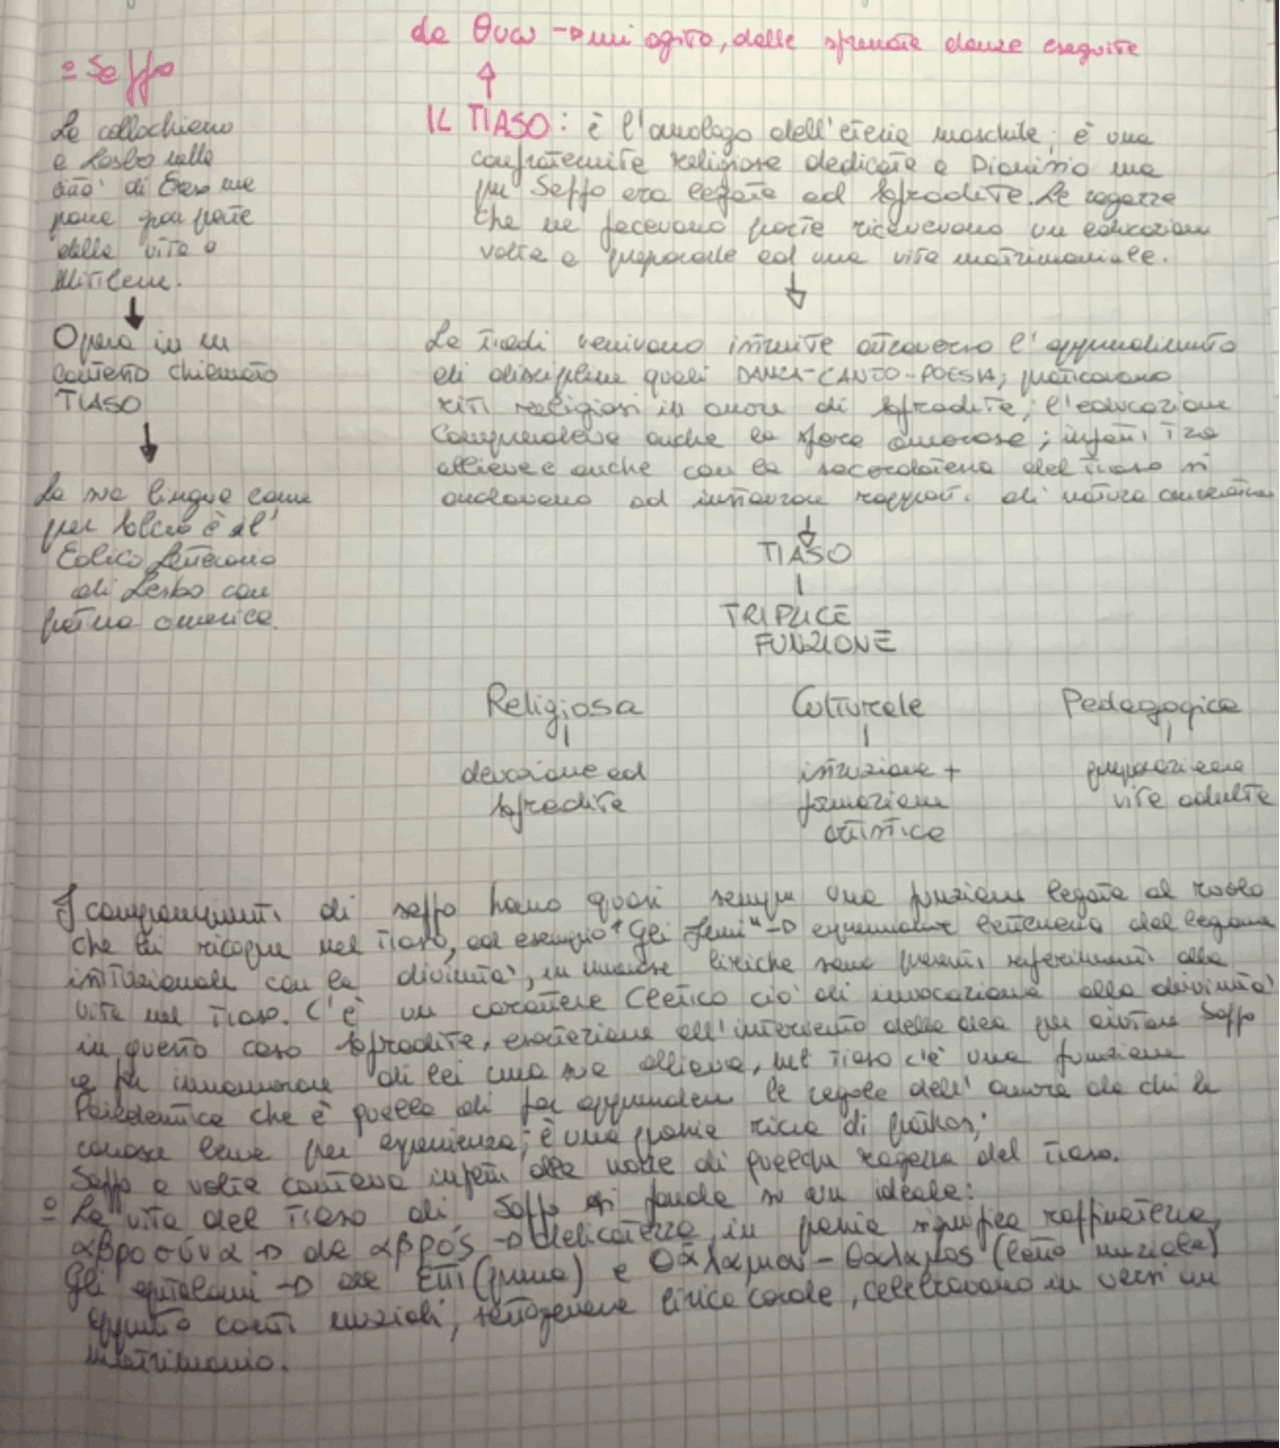 da θυω → mi agito, dalle sfrenate danze eseguite
Saffo
IL TIASO: è l'analogo dell'eteria maschile; è una
confraternita religiosa dedicata a Dioniso ma
per Saffo era legata ad Afrodite. Le ragazze
che ne facevano parte ricevevano un educazione
volta a prepararle ad una vita matrimoniale.
La collochiamo
a Lesbo nella
città di Ereso ma
passa gran parte
della vita a
Mitilene.
Opera in un
contesto chiamato
TIASO
La sua lingua come
per Alceo è l'
Eolico letterario
di Lesbo con
patina omerica.
Le tiadi venivano istruite attraverso l'apprendimento
di discipline quali DANZA-CANTO-POESIA; praticavano
riti religiosi in onore di Afrodite; l'educazione
comprendeva anche la sfera amorosa; infatti tra
allieve e anche con la sacerdotessa del tiaso si
andavano ad instaurare rapporti di natura
TIASO
TRIPLICE
FUNZIONE
Religiosa Culturale Pedagogica
devozione ad
Afrodite
istruzione +
formazione
artistica
vita adulta
I componimenti di saffo hanno quasi sempre una funzione legata al ruolo
che lei ricopre nel tiaso, ad esempio "Gli Inni" → espressione letteraria del legame
istituzionale con la divinità, in numerose liriche sono presenti riferimenti alla
vita nel tiaso. C'è un carattere Cletico ciò di invocazione alla divinità
in questo caso Afrodite, esortazione all'intervento della dea per aiutare Saffo
e far innamorare di lei una sua allieva, nel tiaso c'è una funzione
Paideutica che è quella di far apprendere le regole dell'amore da chi le
conosce bene per esperienza; è una poesia ricca di pathos;
Saffo a volte canta infatti alle nozze di qualche ragazza del tiaso.
La vita del tiaso di Saffo si fonda su un ideale:
αβροσύνα → da αβρός → delicatezza, in poesia significa raffinatezza,
Gli epitalami → da Επι (prima) e θάλαμον - θαλαμος (letto nuziale)
appunto canti nuziali, sottogenere lirica corale, celebravano in versi un
matrimonio.